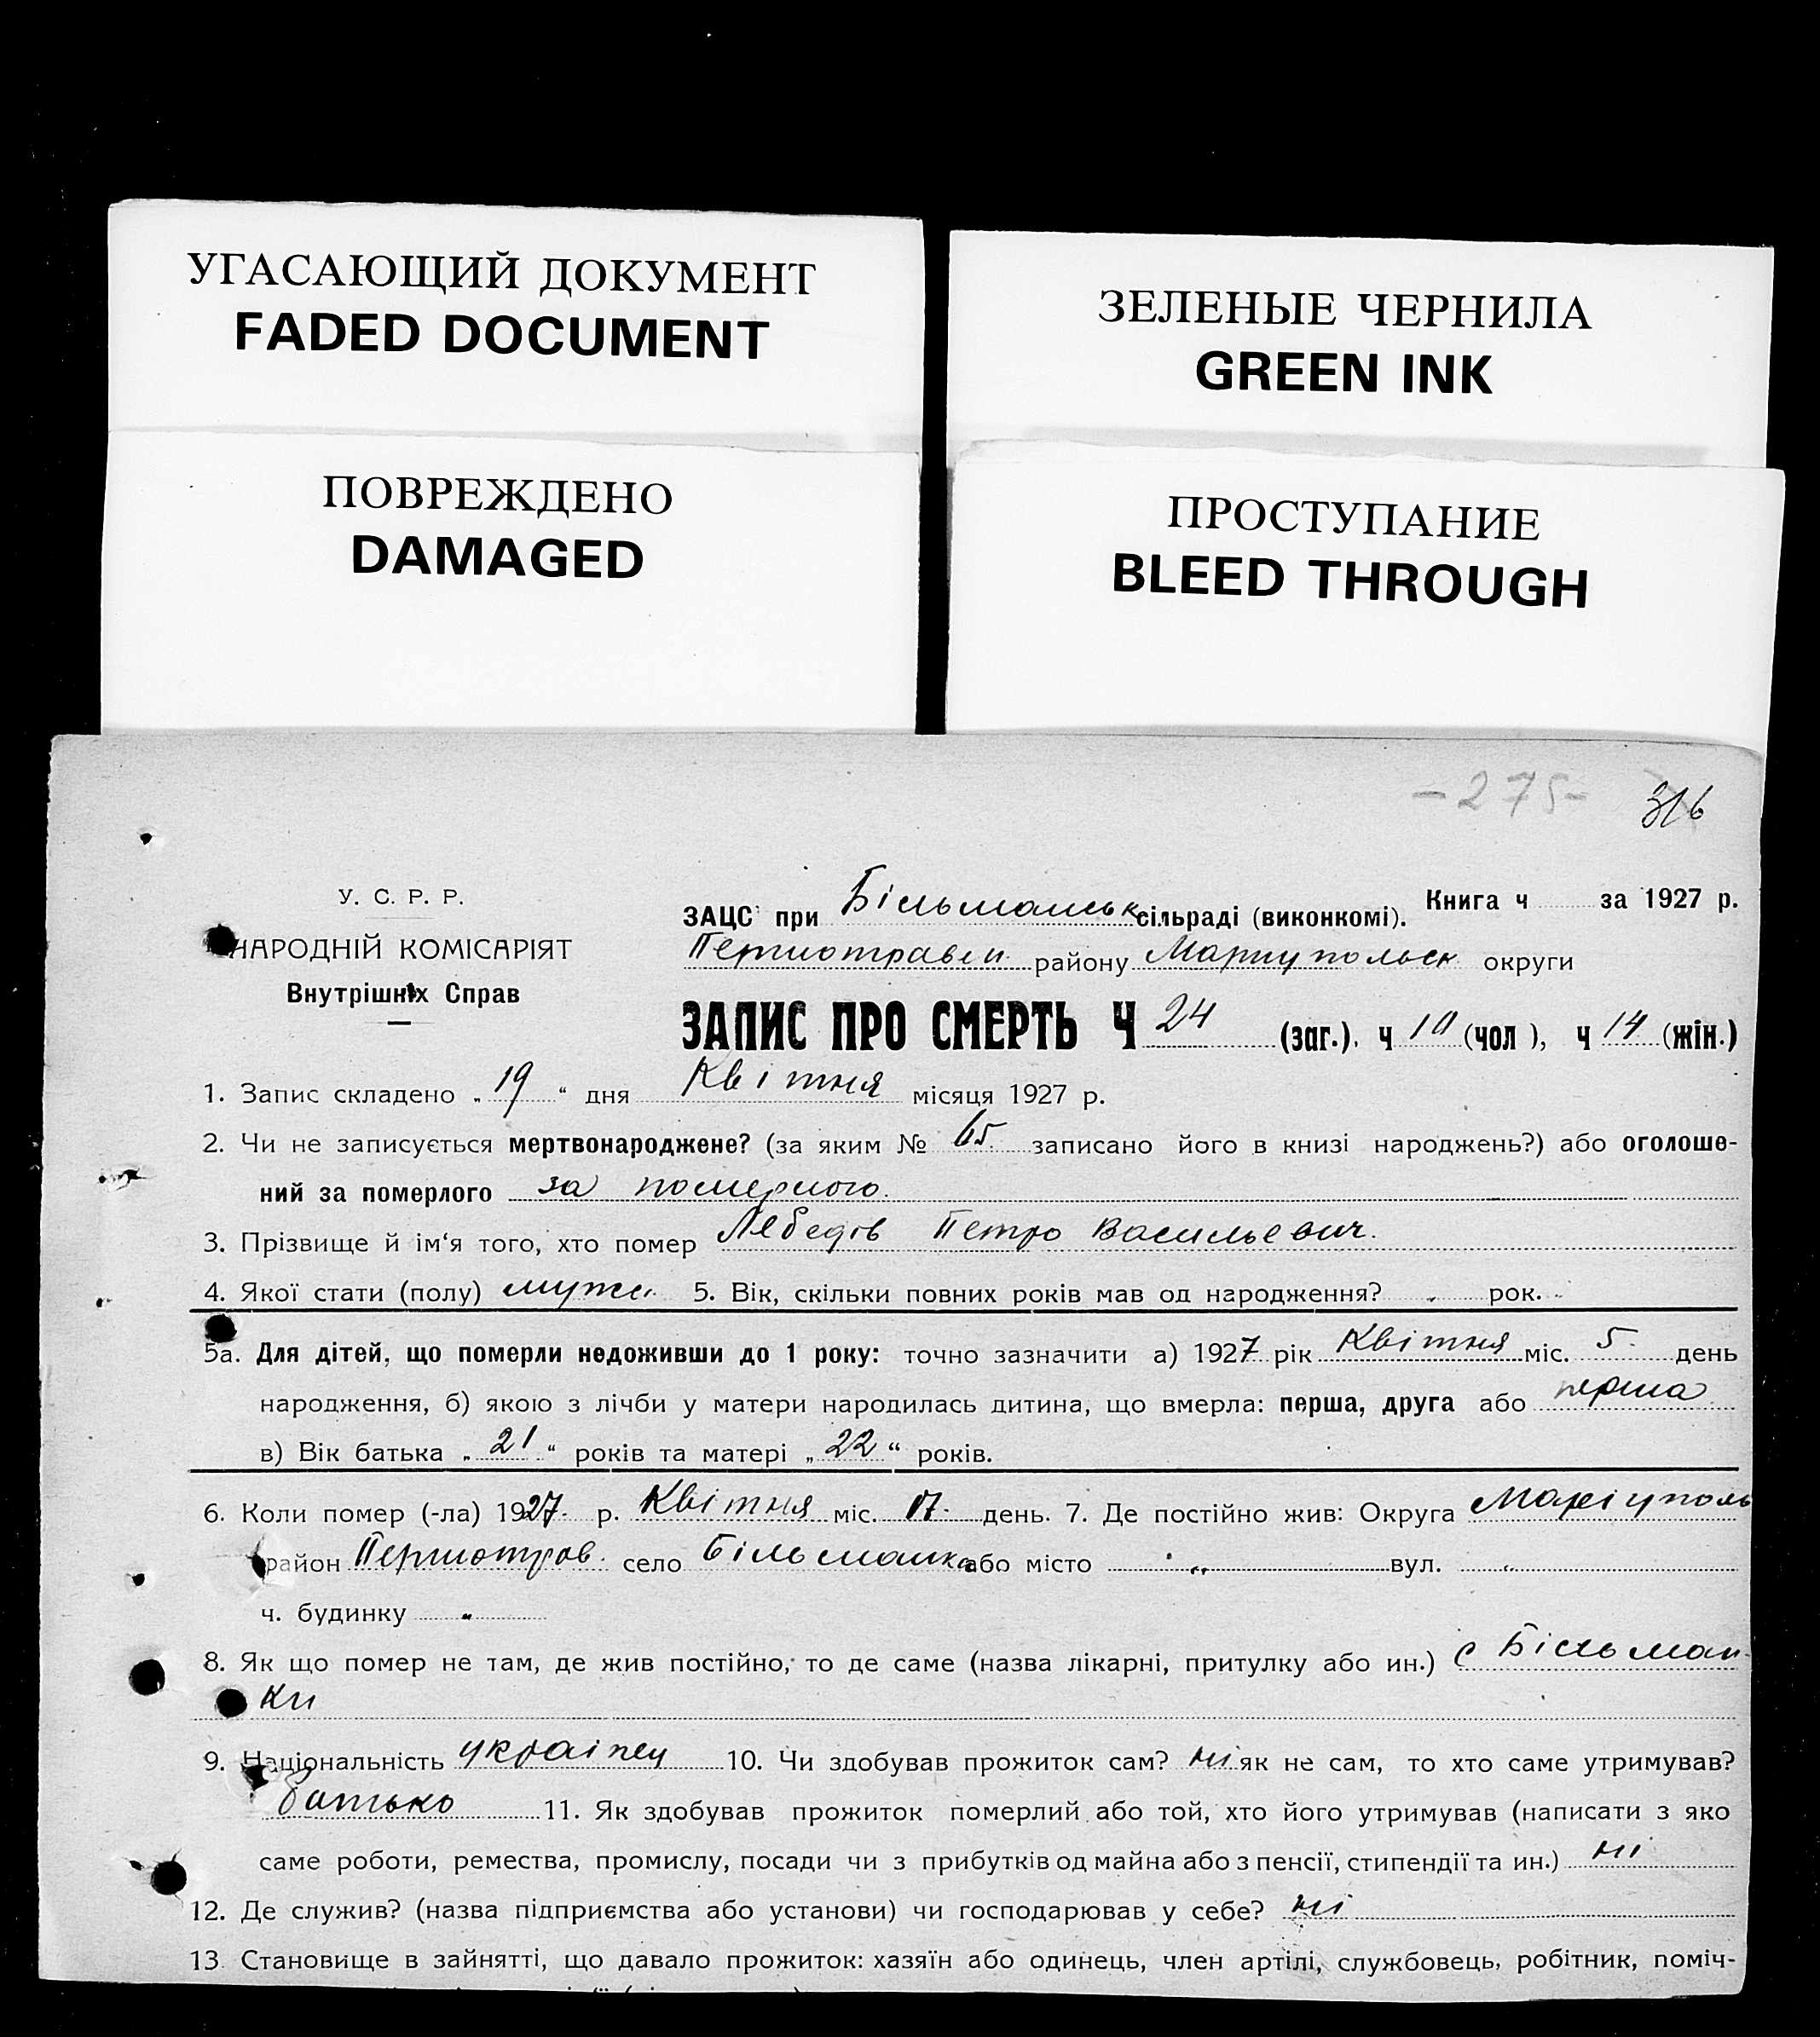 УГАСАЮЩИЙ ДОКУМЕНТ
FADED DOCUMENT
ЗЕЛЕНЫЕ ЧЕРНИЛА
GREEN INK
ПОВРЕЖДЕНО
DAMAGED
ПРОСТУПАНИЕ
BLEED THROUGH
-275- 316
У. С. Р. Р.
НАРОДНІЙ КОМІСАРІЯТ
Внутрішніх Справ
ЗАЦС при Більманськ сільраді (виконкомі). Книга ч за 1927 р.
Першотравен району Маріупольск округи
ЗАПИС ПРО СМЕРТЬ Ч 24 (заг.). ч 10 (чол ), ч 14 (жін.)
1. Запис складено „ 19 “ дня Квітня місяця 1927 р.
2. Чи не записується мертвонароджене? (за яким № 65 записано його в книзі народжень?) або оголоше-
ний за померлого за померлого.
3. Прізвище й ім‘я того, хто помер Лебедів Петро Васильевич.
4. Якої стати (полу) мужс. 5. Вік, скільки повних років мав од народження? „ рок.
5а. Для дітей, що померли недоживши до 1 року: точно зазначити а) 1927 рік Квітня міс. 5 день
народження, б) якою з лічби у матери народилась дитина, що вмерла: перша, друга або перша
в) Вік батька „ 21 “ років та матері „ 22 “ років.
6. Коли помер (-ла) 1927 р. Квітня міс. 17 день. 7. Де постійно жив: Округа Маріуполь
район Першотрав. село Більманка або місто „ вул. „
ч. будинку „
8. Як що помер не там, де жив постійно, то де саме (назва лікарні, притулку або ин.) с Більман-
ки
9. Національність українец 10. Чи здобував прожиток сам? ні як не сам, то хто саме утримував?
батько 11. Як здобував прожиток померлий або той, хто його утримував (написати з яко
саме роботи, ремества, промислу, посади чи з прибутків од майна або з пенсії, стипендії та ин.) ні
12. Де служив? (назва підприємства або установи) чи господарював у себе? ні
13. Становище в зайнятті, що давало прожиток: хазяїн або одинець, член артілі, службовець, робітник, поміч-